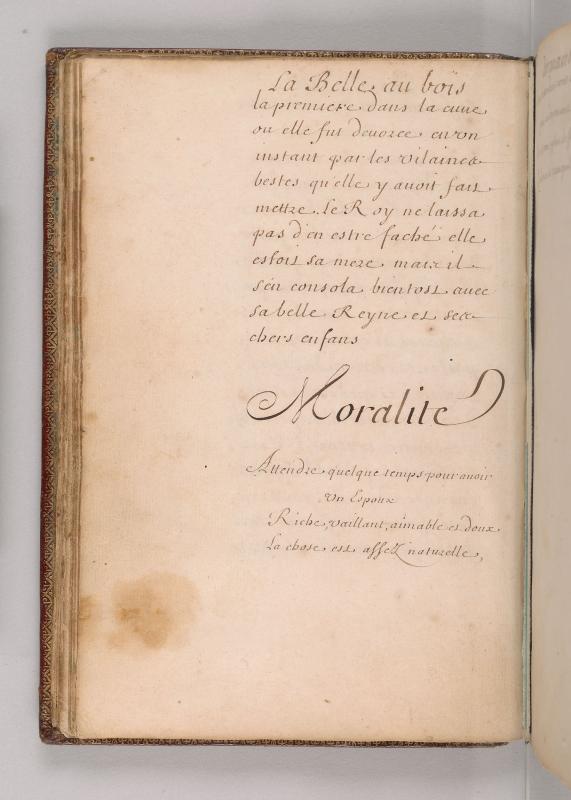 La Belle au boïs
la premiere dans la cuue
ou elle fut deuoree en vn
instant par les vilaines
bestes qu'elle y auoit fait
mettre. Le Roy ne laissa
pas d'en estre faché elle
estoit sa mere mais il
s'en consola bientost auec
sa belle Reyne et ses
chers enfans
Moralité
Attendre quelque temps pour auoir
vn Espoux
Riche, vaillant, aimable et doux
La chose est assez naturelle,